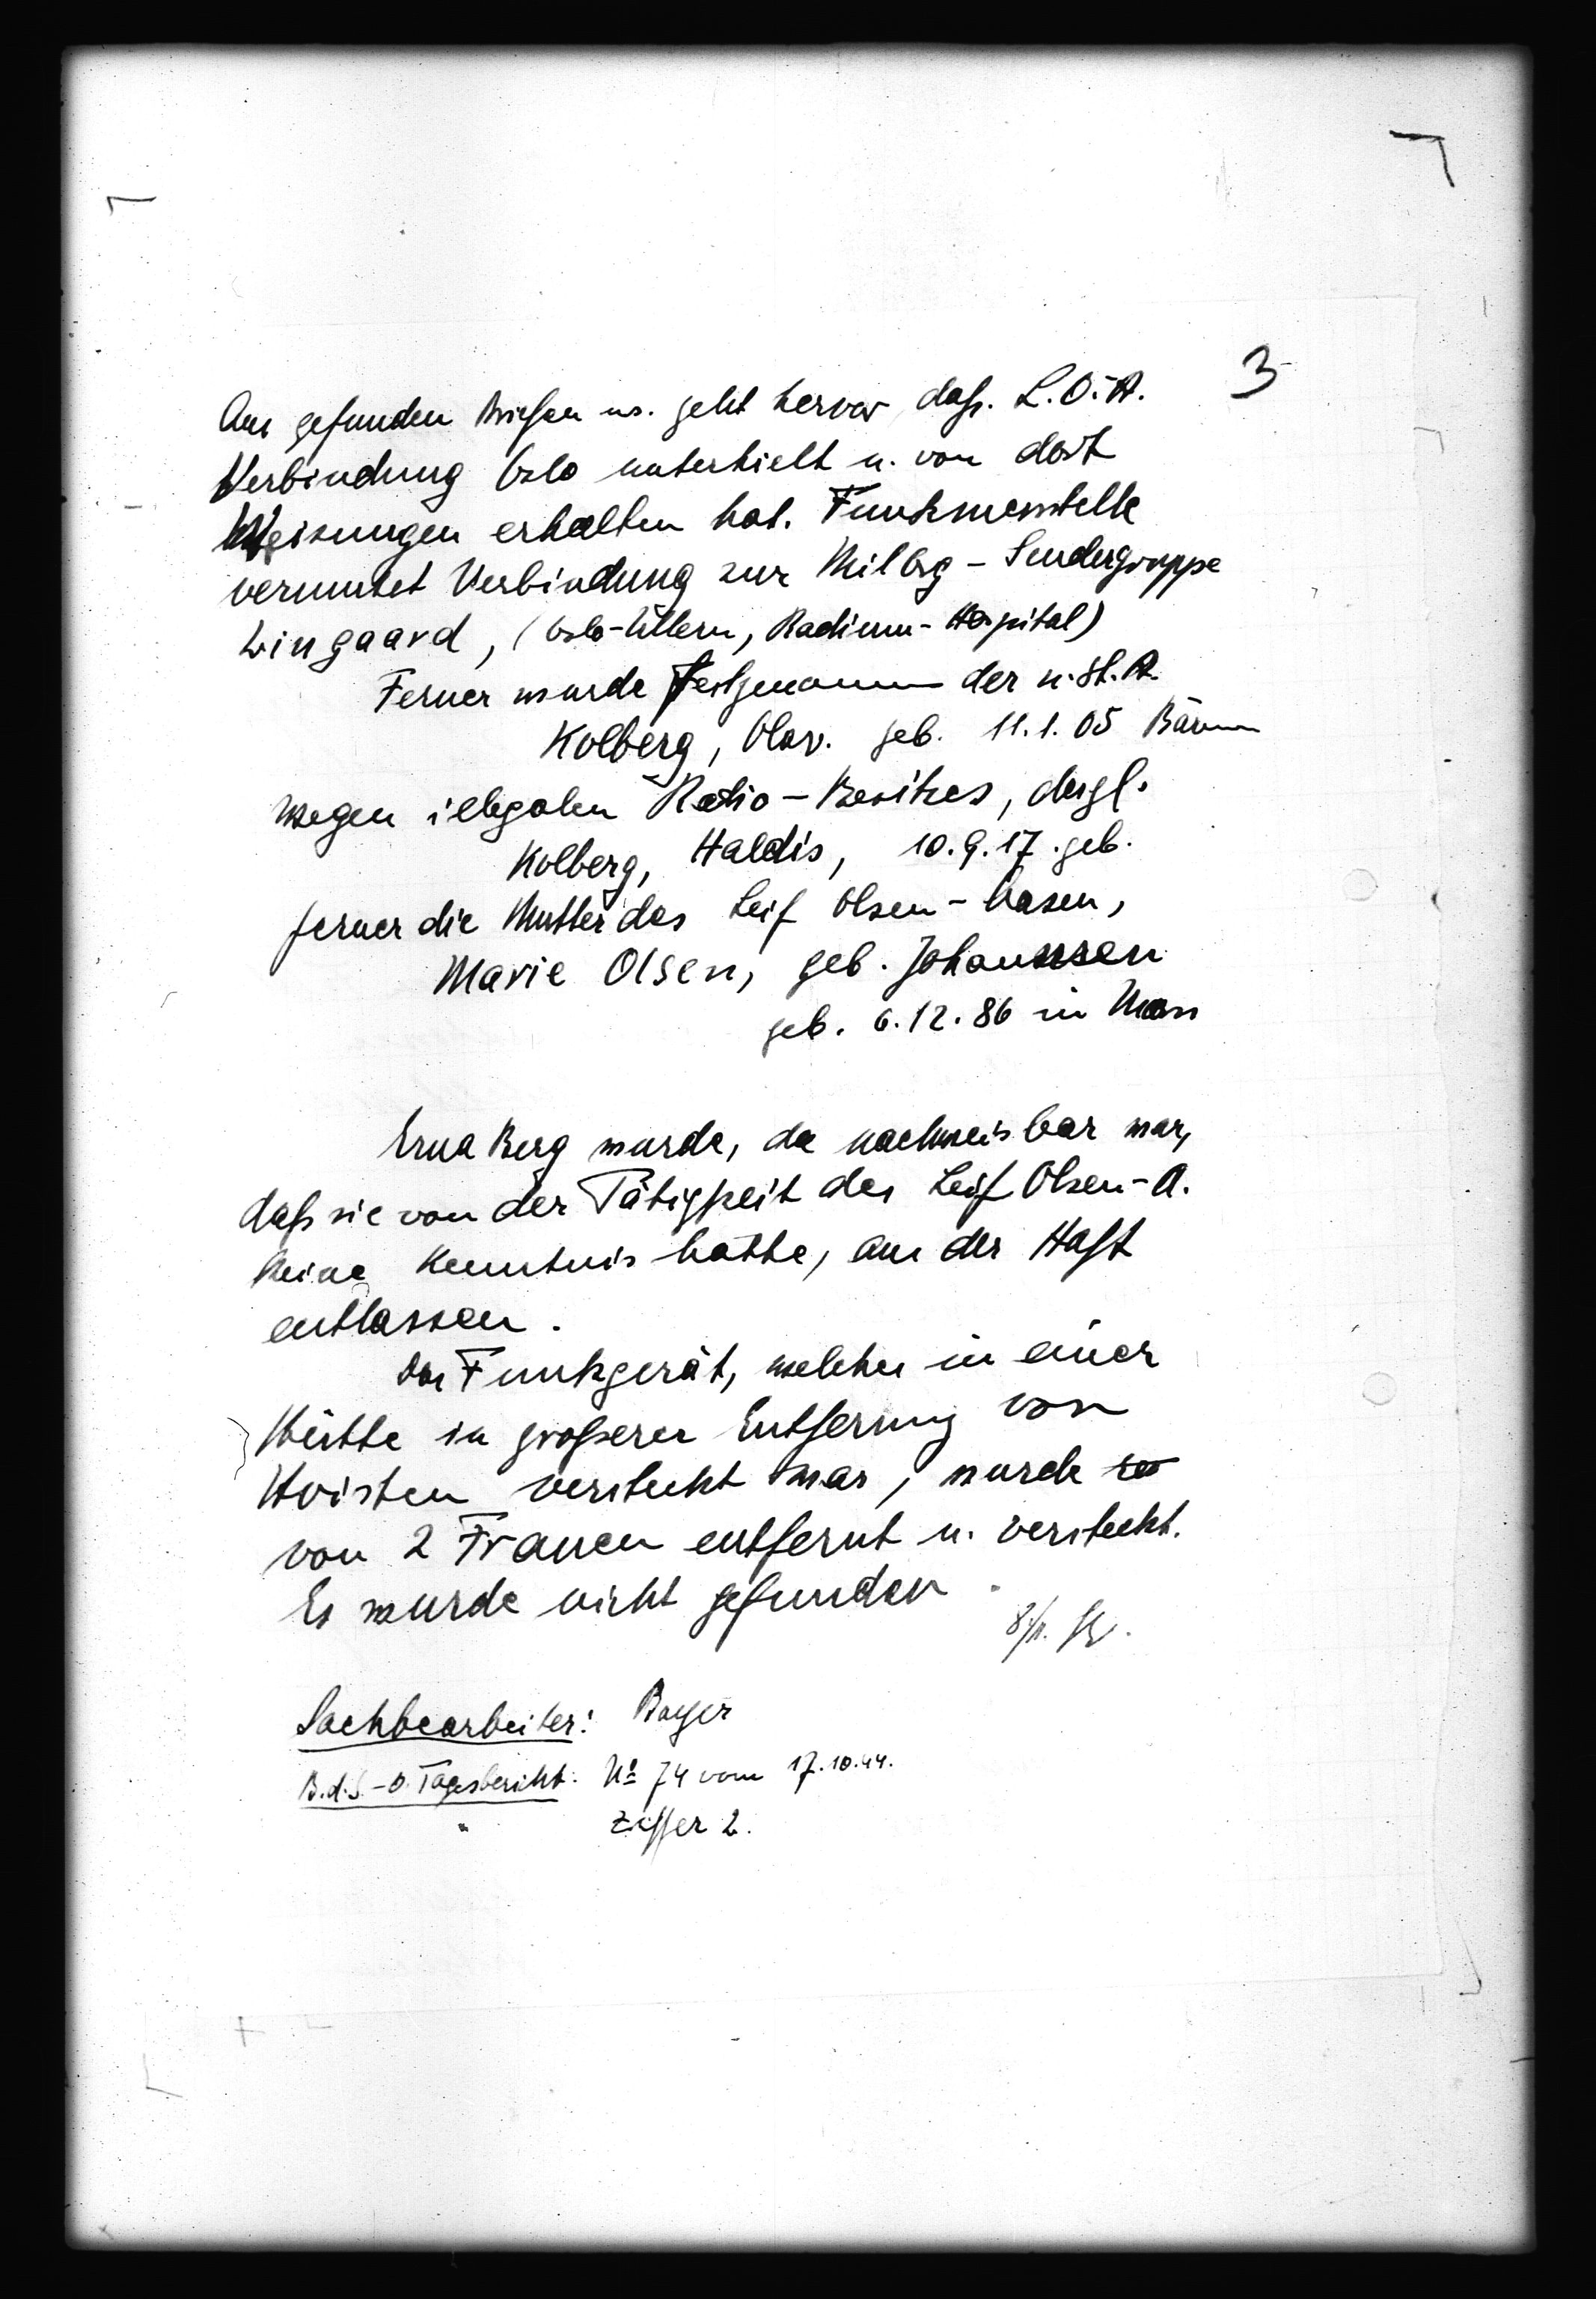 3
Aus gefunden Briefen us. geht hervor, daß. L.O.A.
Verbindung Oslo unterhielt u. von dort
Weisungen erhalten hat. Funkmesstelle
vermutet Verbindung zur Milorg - Sendergruppe
Lingaard, (Oslo-Ullern, Radium-Hospital)
Ferner wurde festgenommen der n. St. A.
Kolberg, Olav. geb. 11.1.05 Bärum
wegen illegalen Radio-Besitzes, desgl.
Kolberg, Haldis, 10.9.17. geb.
ferner die Mutter des Leif Olsen-Aasen,
Marie Olsen, geb. Johannsen
geb. 6.12.86 in Moss
Erna Berg wurde, da nachweisbar war,
daß sie von der Tätigkeit des Leif Olsen-A.
keine Kenntnis hatte, aus der Haft
entlassen.
Das Funkgerät, welches in einer
Hütte in großerer Entfernung von
Hvisten versteckt war, wurde
von 2 Frauen entfernt u. versteckt.
Es wurde nicht gefunden.
Sachbearbeiter: Bayer
B.d.S.-O. Tagesbericht: No 74 vom 17.10.44.
Ziffer 2.